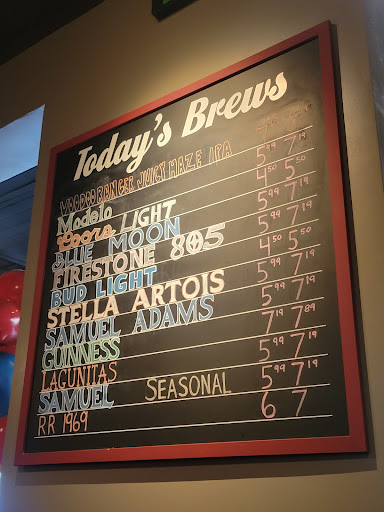 Today's Brews
VOODOO RANGER JUICY HAZE IPA
Modelo 5.99 7.19
Coors LIGHT 4.50 5.50
BLUE MOON 5.99 7.19
FIRESTONE 805 5.99 7.19
BUD LIGHT 4.50 5.50
STELLA ARTOIS 5.99 7.19
SAMUEL ADAMS 5.99 7.19
GUINNESS 7.19 7.89
LAGUNITAS 5.99 7.19
SAMUEL SEASONAL 5.99 7.19
RR 1969 6 7